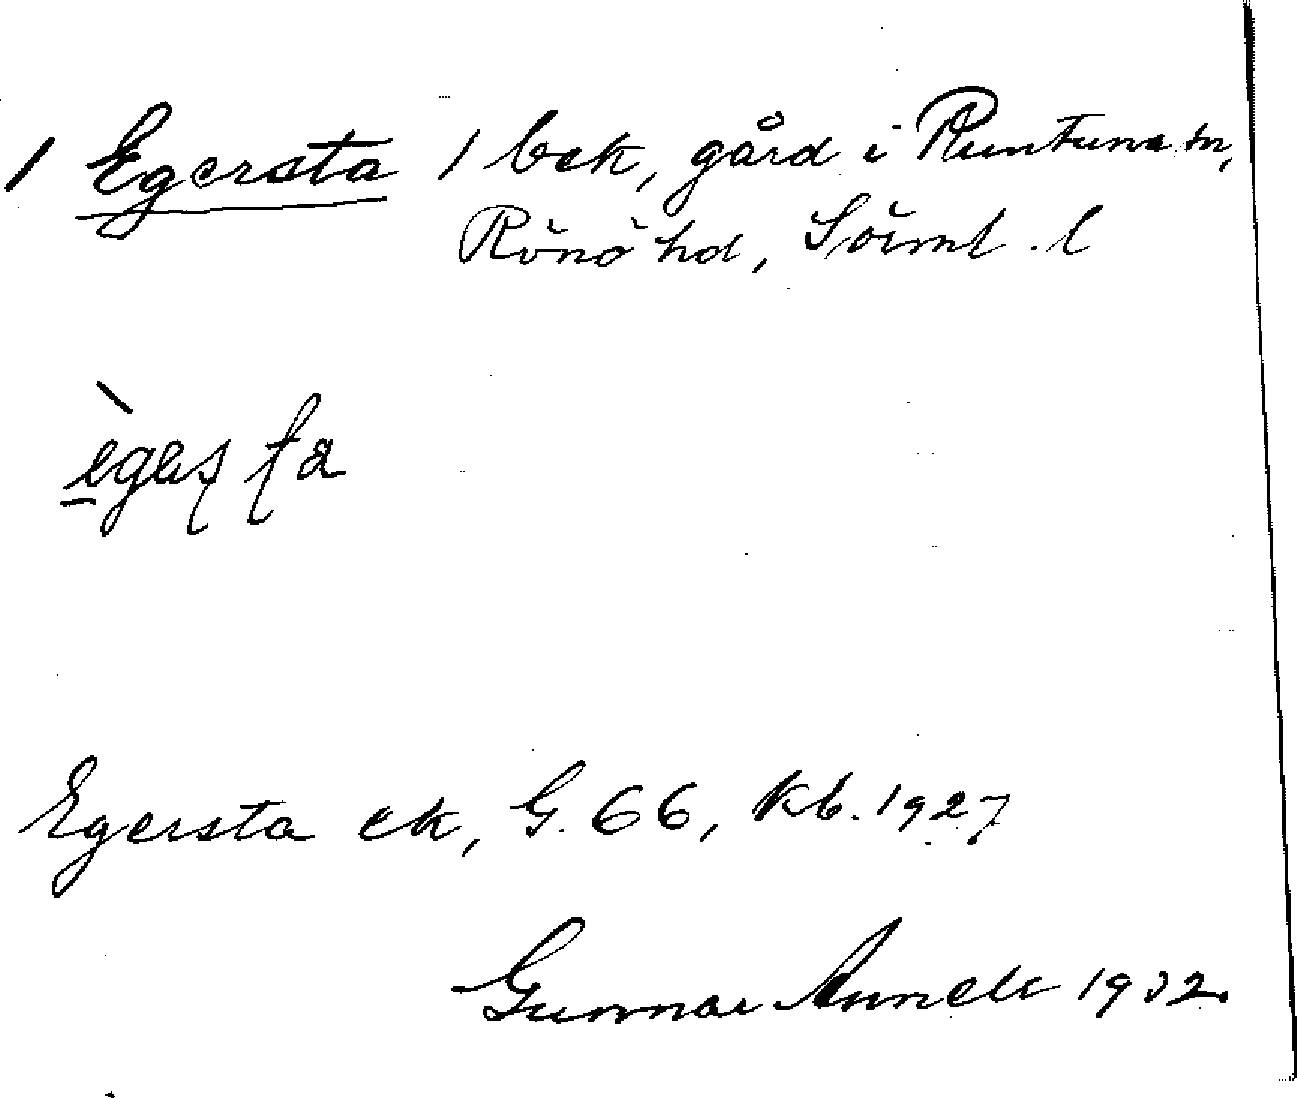 1 Egersta 1 bek, gård i Runtuna sn,
Rönö hd, Sörml. l
Egersta ek, G. 66, Kb. 1927
Gunnar 1932.